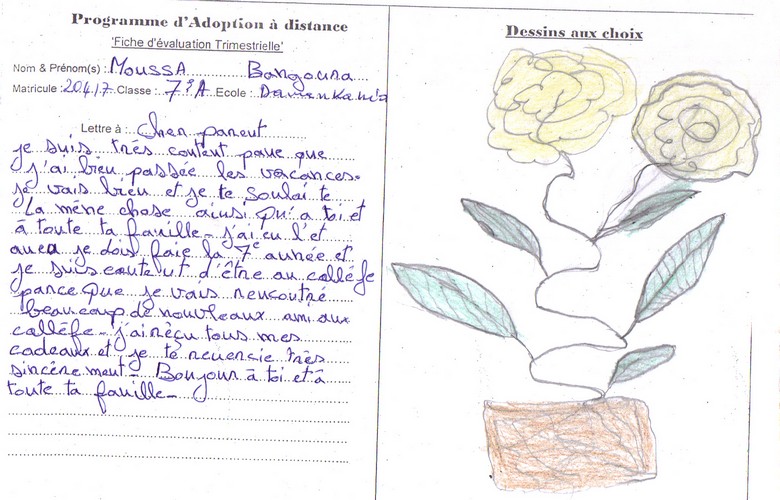 Programme d'Adoption à distance
'Fiche d'évaluation Trimestrielle'
Nom & Prénom(s) : MOUSSA Bangoura
Matricule : 20417 Classe : 7ºA Ecole :
Lettre à : Cher parent
je suis très content parce que
j'ai bien passée les vacances.
je vais bien et je te soulai te
La mêne chose ainsi qu'a toi et
à toute ta famille - j'ai eu l'et
je dois faie la 7e année et
je suis d'être au collêfe
parce que je vais rencontré
beaucoup de nouveaux ami aux
collêfe - j'ai rèçu tous mes
cadeaux et je te remercie très
sincére ment - Bonjour à toi et à
toute ta famille -
Dessins aux choix